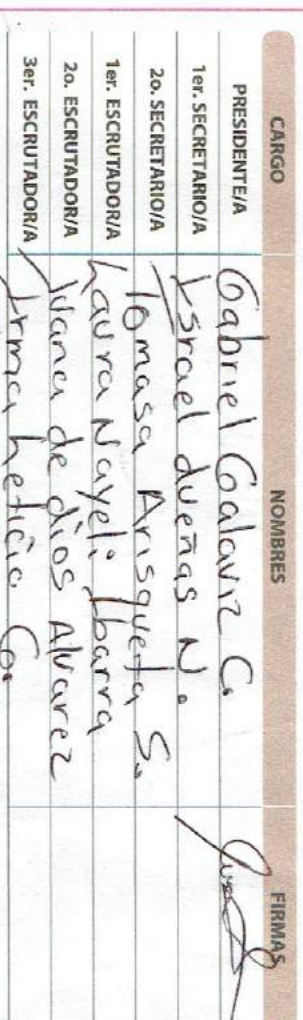 CARGO NOMBRES FIRMAS
PRESIDENTE/A Gabriel Galaviz G.
1er. SECRETARIO/A Israel dueñas N.
2o. SECRETARIO/A Tomasa Arisqueta S.
1er. ESCRUTADOR/A Laura Nayeli Ibarra
2o. ESCRUTADOR/A Juana de dios Alvarez
3er. ESCRUTADOR/A Irma Leticia G.